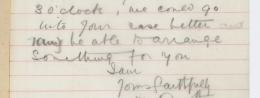 3 o'clock, we could go
into your case better and
may be able to arrange
something for you
I am
Yours faithfully